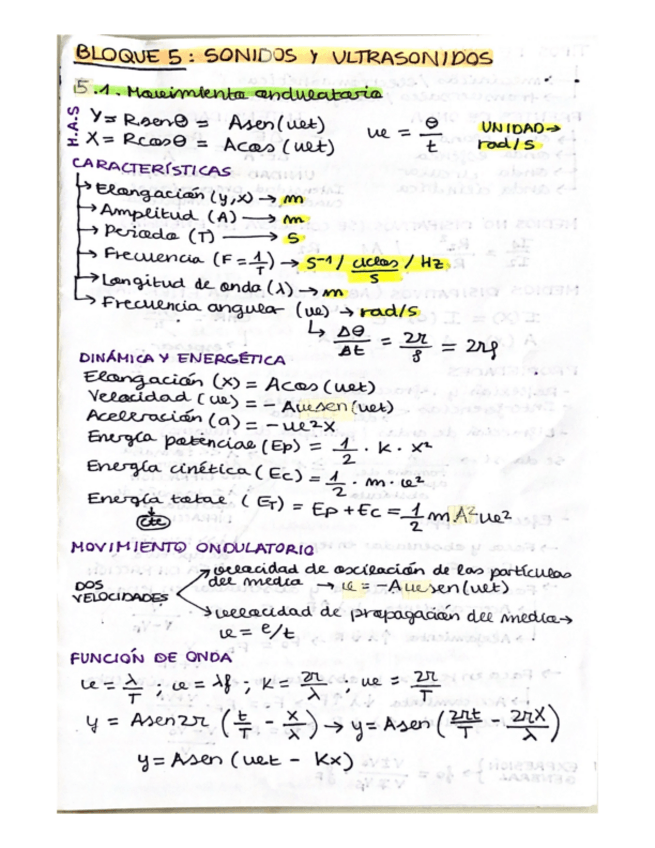 BLOQUE 5: SONIDOS Y ULTRASONIDOS
5.1. Movimiento ondulatorio
H.A.S
Y = Rsenθ = Asen(wt)
X = Rcosθ = Acos(wt)
w = θ/t
UNIDAD→
rad/s
CARACTERÍSTICAS
↳ Elongación (y,x) → m
→ Amplitud (A) → m
→ Periodo (T) → s
→ Frecuencia (F = 1/T) → s⁻¹ / ciclos/s / Hz
→ Longitud de onda (λ) → m
↳ Frecuencia angular (w) → rad/s
↳ Δθ/Δt = 2π/ρ = 2πf
DINÁMICA Y ENERGÉTICA
Elongación (x) = Acos(wt)
Velocidad (v) = -Awsen(wt)
Aceleración (a) = -w²x
Energía potencial (Ep) = 1/2 · K · x²
Energía cinética (Ec) = 1/2 · m · v²
Energía total (ET) = Ep + Ec = 1/2 m A² w²
cte
MOVIMIENTO ONDULATORIO
DOS
VELOCIDADES
velocidad de oscilación de las partículas
del medio → v = -Awsen(wt)
velocidad de propagación del medio→
v = e/t
FUNCIÓN DE ONDA
v = λ/T ; v = λf ; K = 2π/λ ; w = 2π/T
y = Asen2π (t/T - x/λ) → y = Asen (2πt/T - 2πX/λ)
y = Asen (wt - Kx)